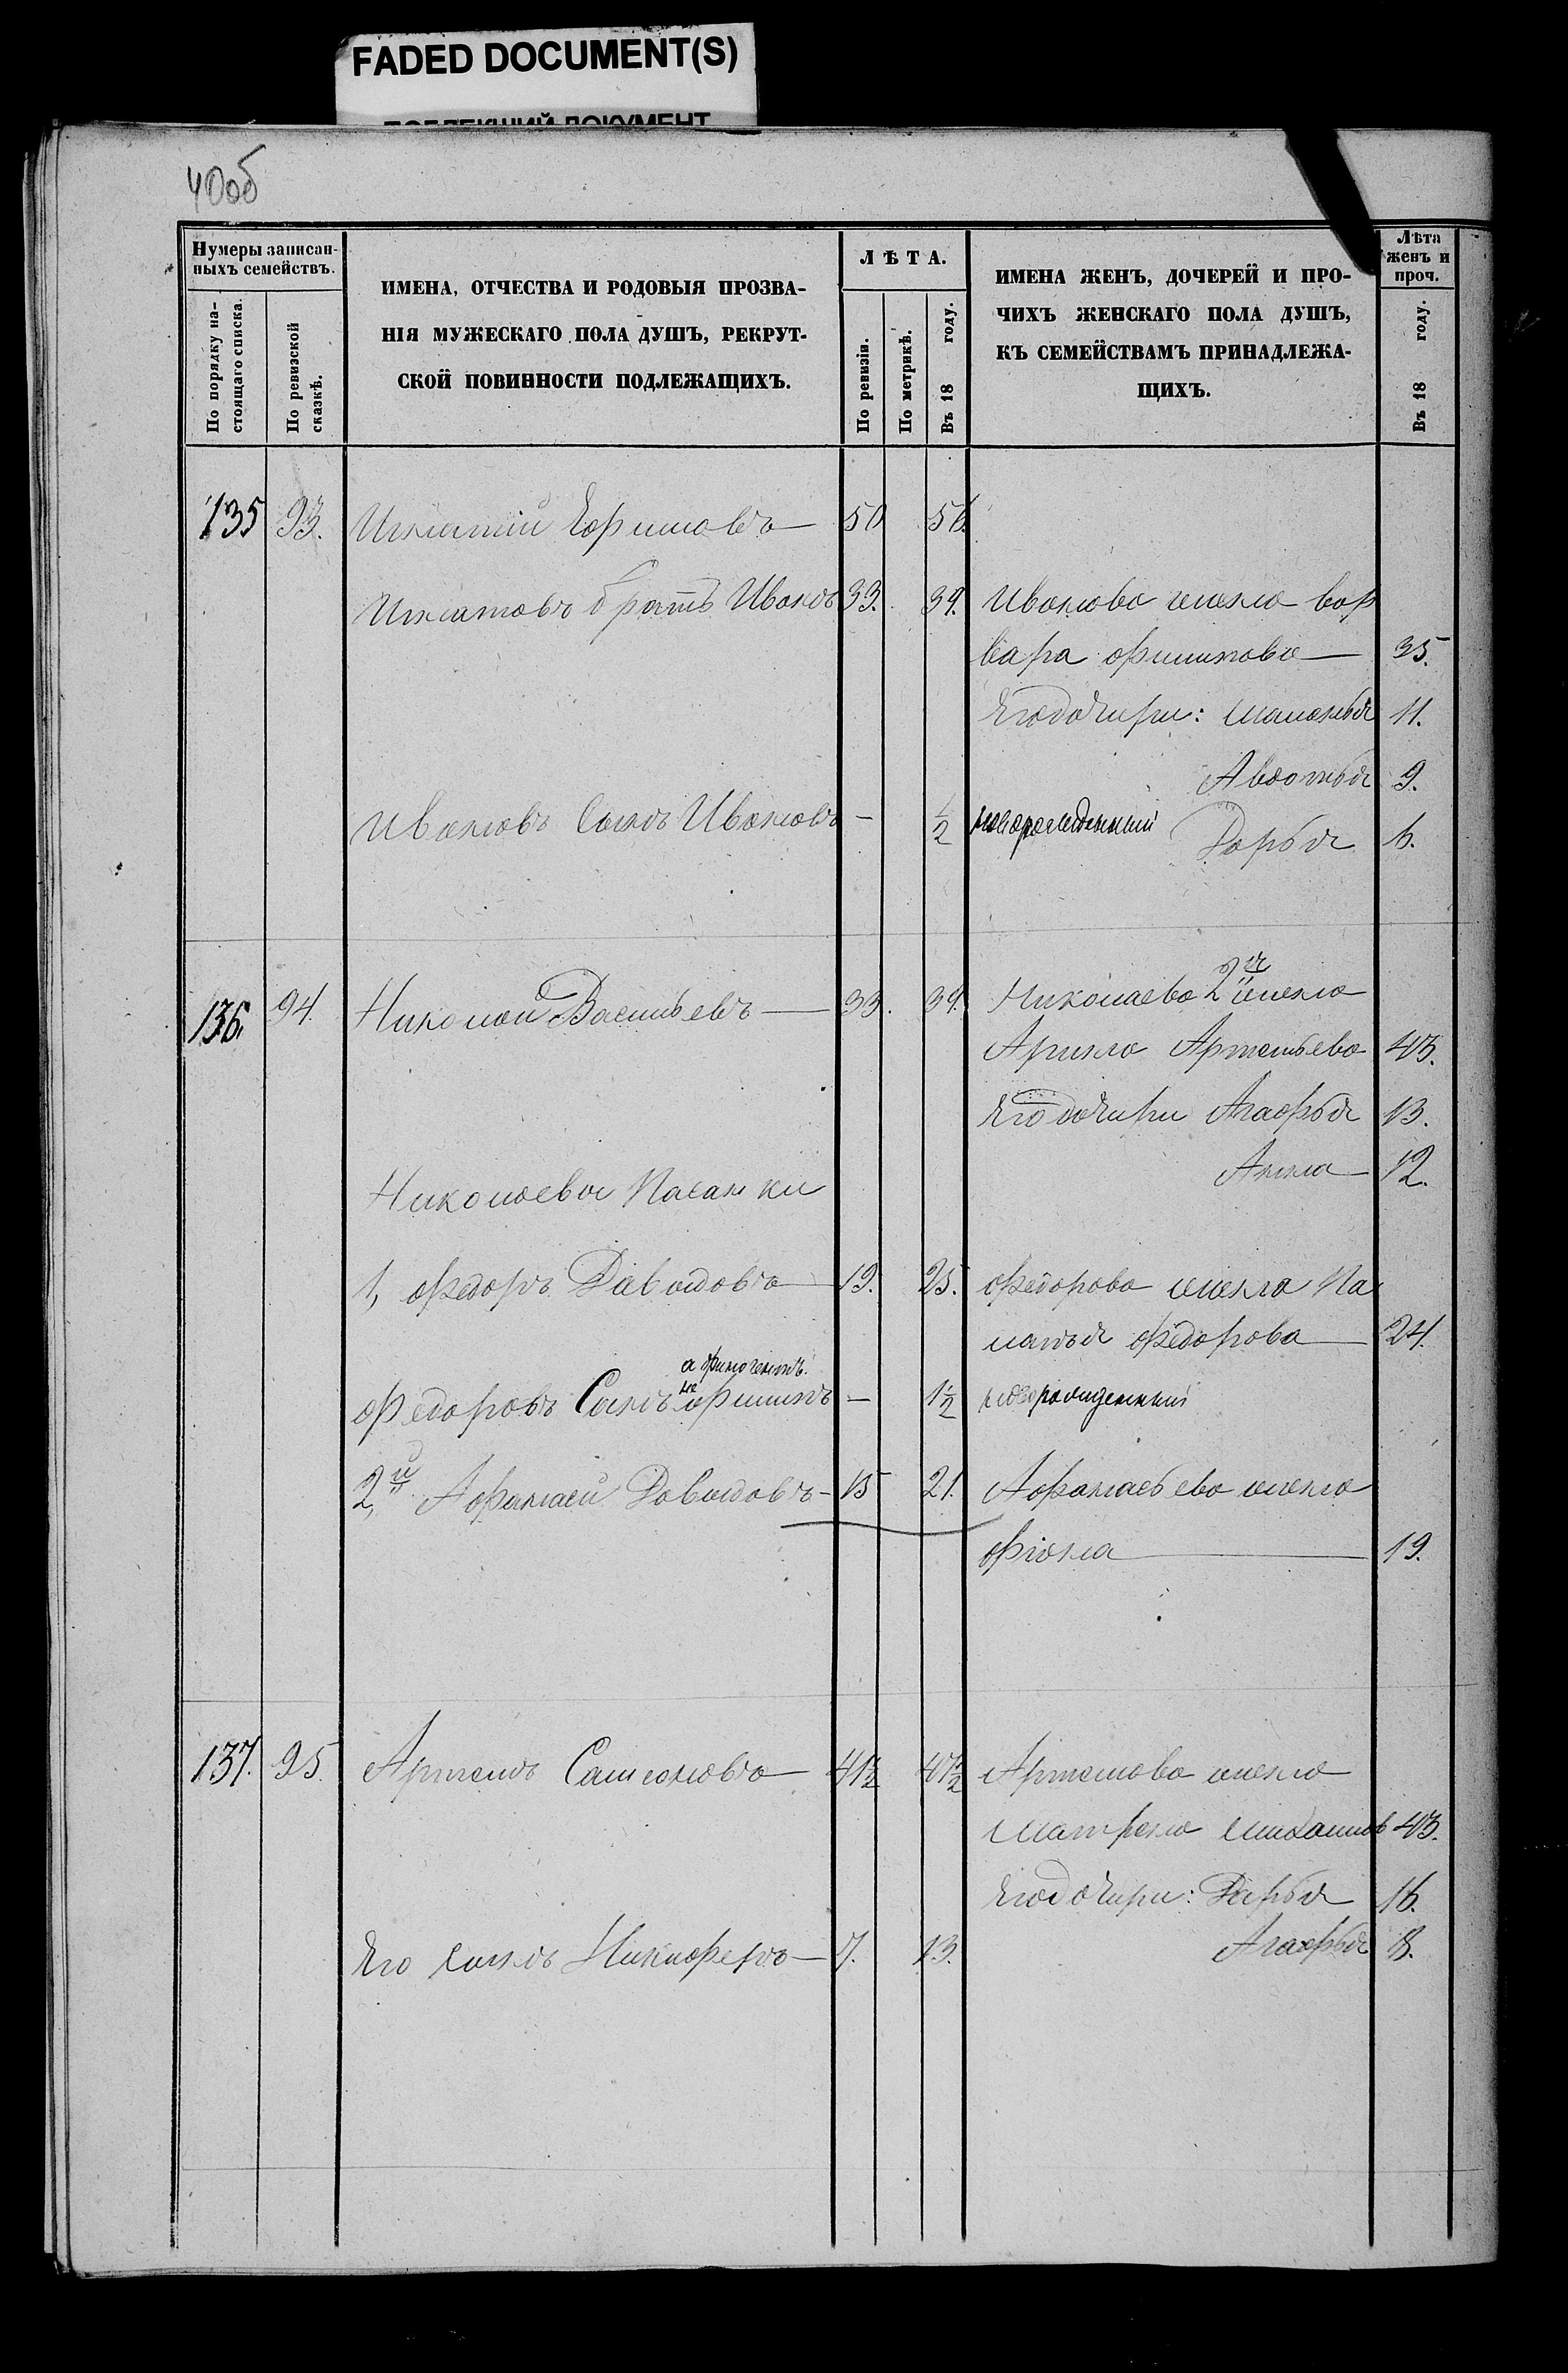 FADED DOCUMENT(S)
40об
Нумеры записан-
ныхъ семействъ.
По порядку на-
стоящаго списка.
По ревизской
сказкѣ.
ИМЕНА, ОТЧЕСТВА И РОДОВЫЯ ПРОЗВА-
НІЯ МУЖЕСКАГО ПОЛА ДУШЪ, РЕКРУТ-
СКОЙ ПОВИННОСТИ ПОДЛЕЖАЩИХЪ.
ЛѢТА.
По ревизіи.
По метрикѣ.
Въ 18 году.
ИМЕНА ЖЕНЪ, ДОЧЕРЕЙ И ПРО-
ЧИХЪ ЖЕНСКАГО ПОЛА ДУШЪ,
КЪ СЕМЕЙСТВАМЪ ПРИНАДЛЕЖА-
ЩИХЪ.
Лѣта
женъ и
проч.
Въ 18 году.
135 93. Игнатій Ефимовъ 50 56.
Игнатовъ братъ Иванъ 33. 39. Иванова жена вар
вара филипова 35.
Его дочери: маланья 11.
Авдотья 9.
Ивановъ Сынъ Иванъ - 1/2 новорожденный Дарья 6.
136. 94. Николай Васильевъ 33. 39. Николаева 2я жена
Арина Артемьева 43.
Его дочери Агафья 13.
Анна 12.
Николаевы Пасанки
1, федоръ Давыдовъ 19. 25. федорова жена Па
лагья федорова 24.
афиногенъ.
федоровъ Сынъ не филипъ - 1 1/2 новорожденный
2,й Афанасей Давыдовъ - 15 21. Афанасьева жена
фіокла 19.
137. 95. Артемъ Самсоновъ 41 1/2 47 1/2 Артемова жена
матрена михайлов 43.
Его дочери: Дарья 16.
Его сынъ Никифоръ 7. 13. Агафья 8.